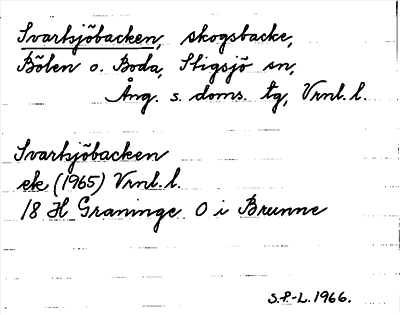 Svartsjöbacken, skogsbacke,
Bölen o. Boda, Stigsjö sn,
Ång. s. doms. tg, Vrnl. l.
Svartsjöbacken
ek (1965) Vrnl. l.
18 H Graninge O i Brunne
S.P-L. 1966.